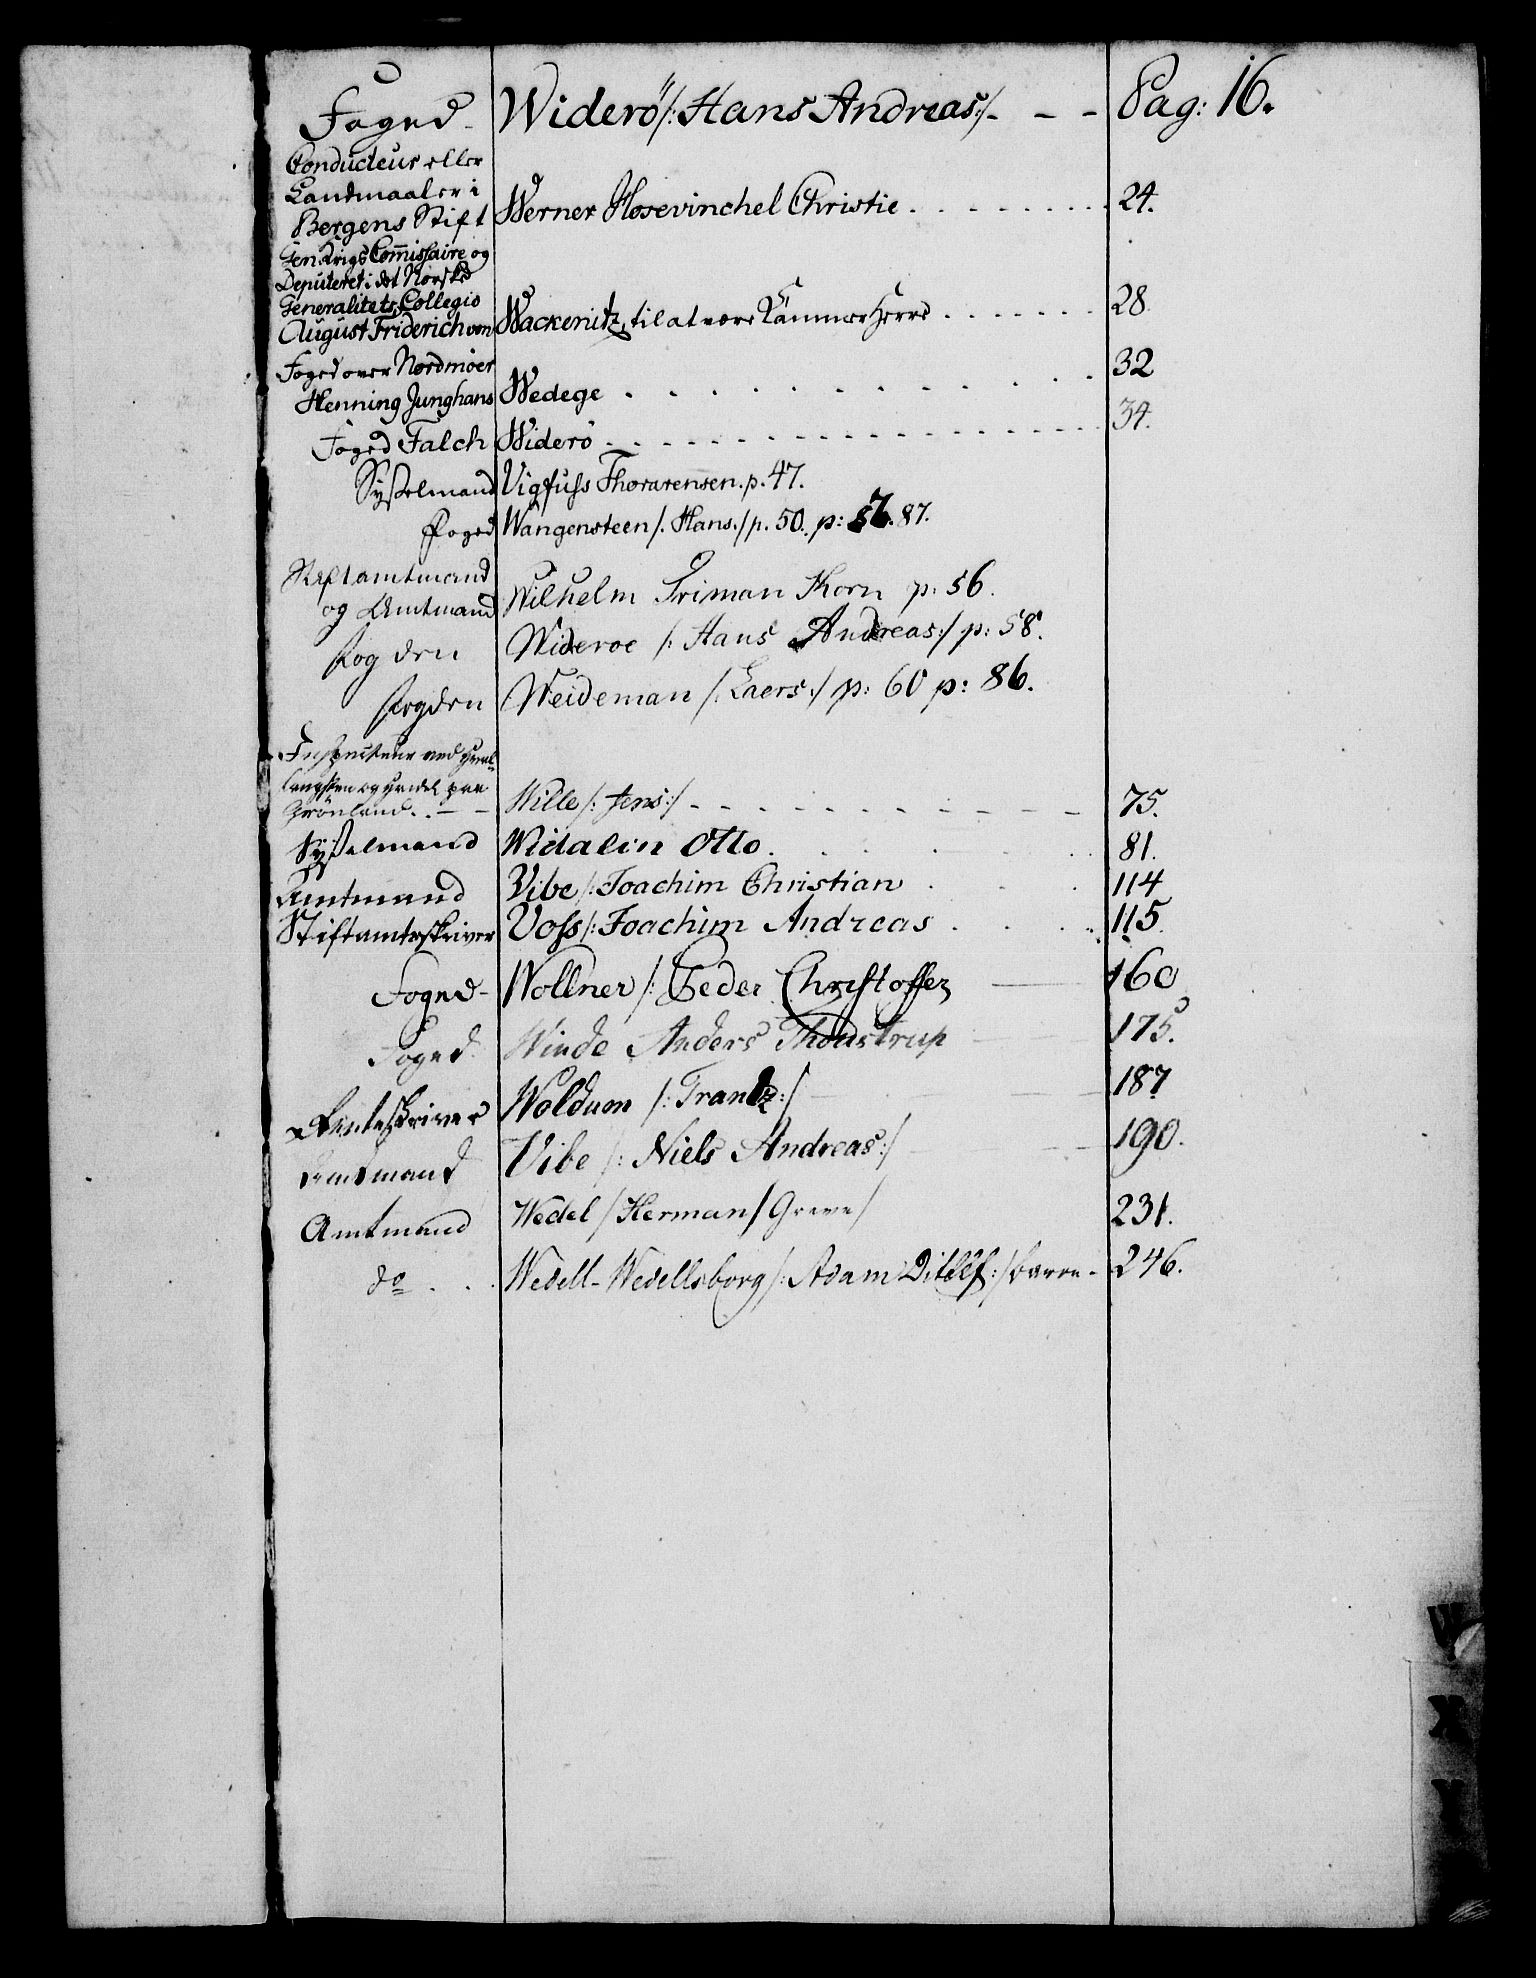 Foged - Widerö /: Hans Andreas :/ - - - Pag: 16.
Conducteur eller
Landmaaler i
Bergens Stift Werner Hosevinchel Christie . . . . . . . . 24.
Gen. Krigs Com̄issaire og
Deputeret i det Norske
Generalitets Collegio
August Friderich von Wackenitz, til at være Kammer Herre . . . . . . . 28.
Foged over Nordmöer 32
Henning Junghans Wedege . . . . . . . . . . . .
Foged Falch Widerö - - - - - - - - - - - - - - - 34.
Sysselmand Vigfuss Thorarensen. p. 47.
Foged Wangensteen /. Hans./ p. 50. p: 57. 87.
Stiftamtmand
og Amtmand Wilhelm Friman Korn p: 56.
Fogden Wideroe /: Hans Andreas :/ p: 58.
Fogden Weideman /: Laers :/ p: 60 p: 86.
Inspecteur ved Hval
fangsten og Handel paa
Grönland . . - - Wille /: Jens :/ - - - - - - - - - - 75.
Sysselmand Widalin Otto . . . . . 81.
Amtmand Vibe /: Joachim Christian . . . 114
Stiftamtsskriver Voss /: Joachim Andreas . . . . 115.
Foged - Wollner /: Peder Christoffer 160
Foged. Winde Anders Thoustrup 175.
Amtsskriver Woldum /: Frantz :/ 187
Amtmand Vibe /: Niels Andreas :/ 190.
Amtmand Wedel / Herman / Greve / 231.
do . . Wedell-Wedellsborg /: Adam Ditlef :/ Baron - 246.
W
X
Y